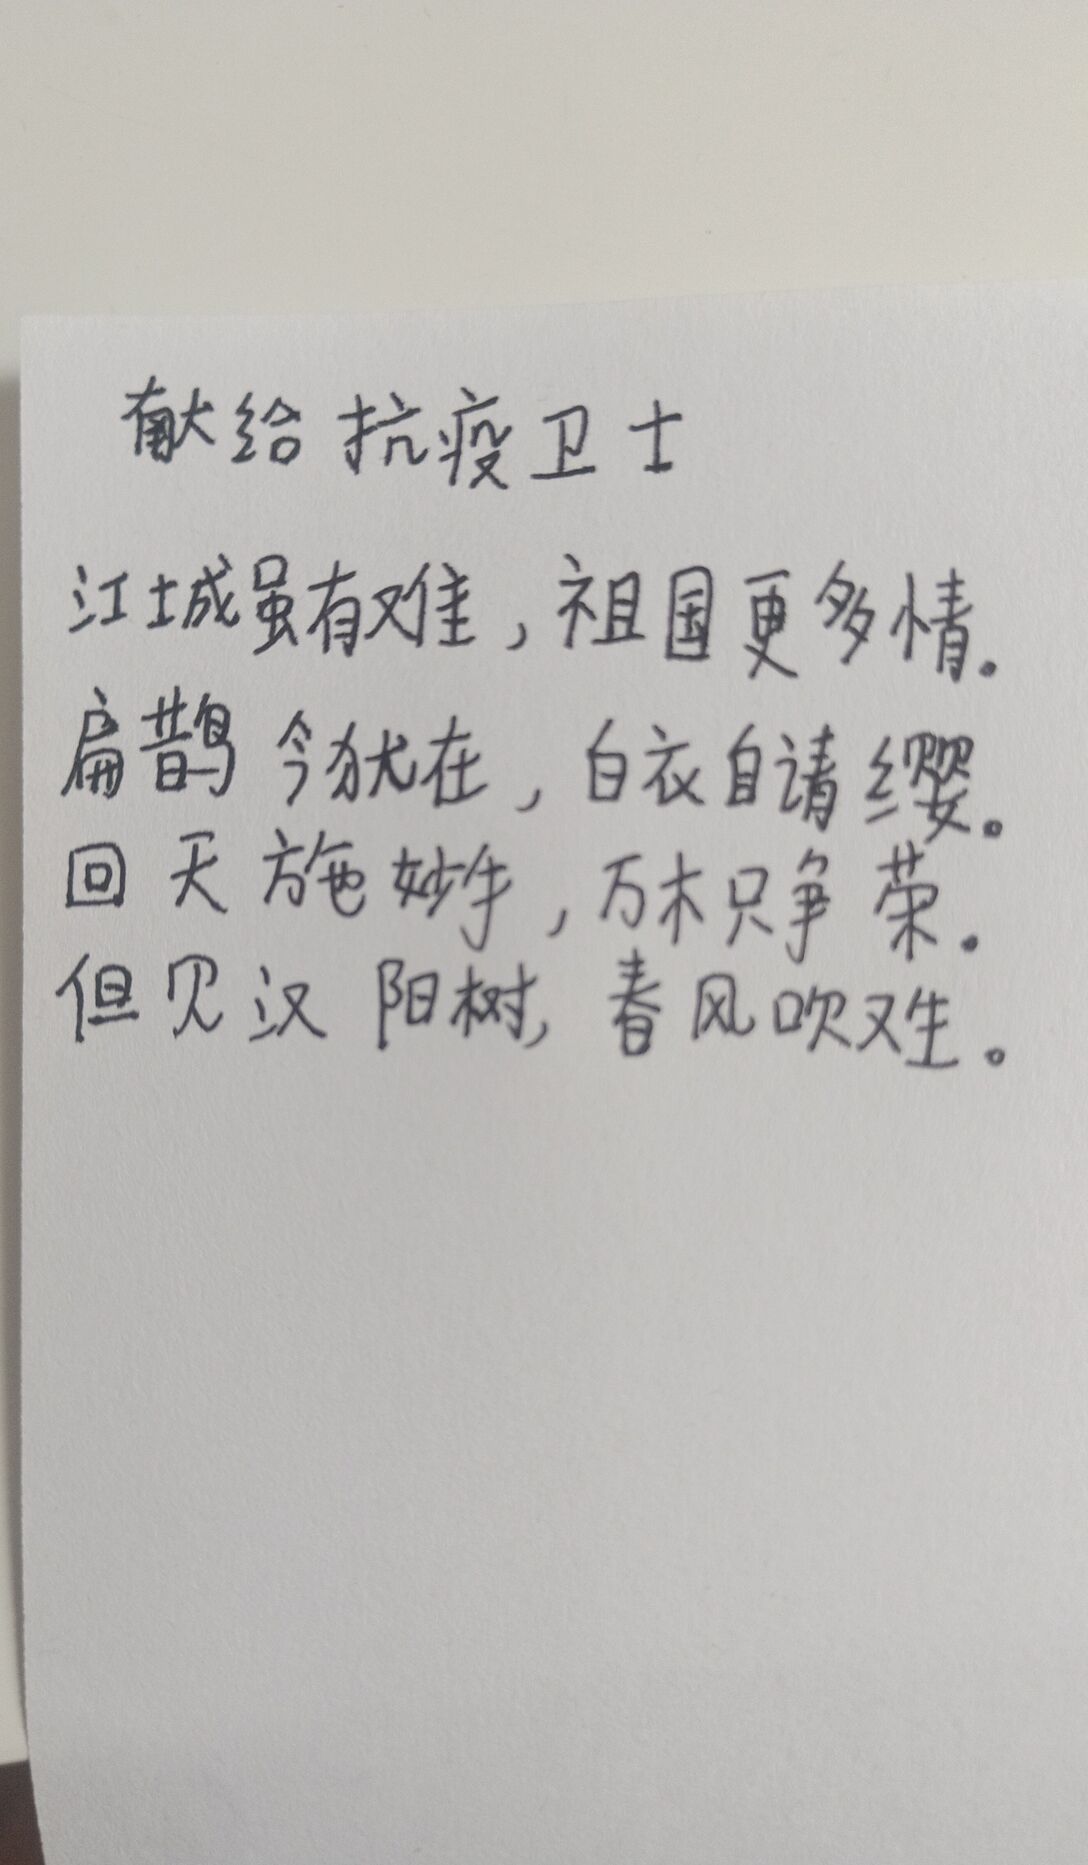 献给抗疫卫士
江城虽有难，祖国更多情。
扁鹊今犹在，白衣自请缨。
回天施妙手，万木只争荣。
但见汉阳树，春风吹又生。